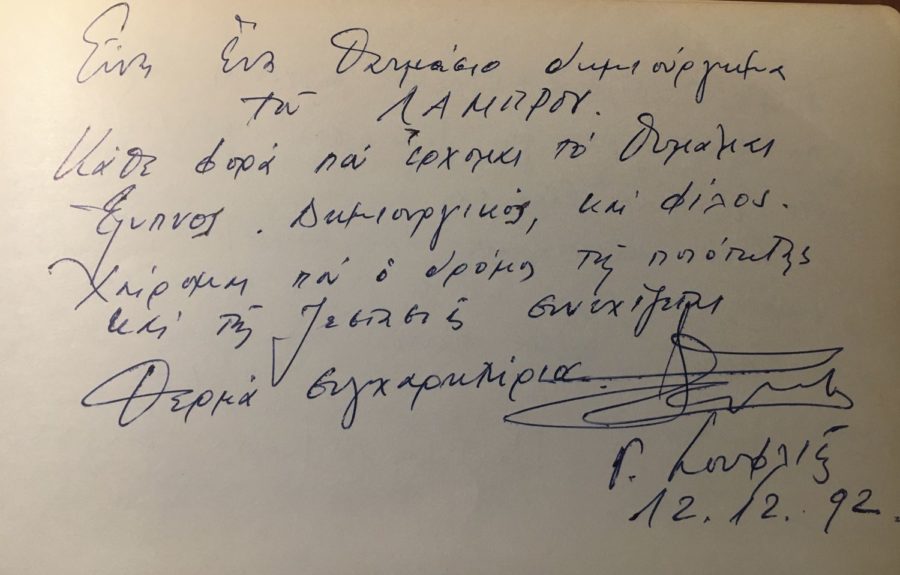 Εἶναι ἕνα θαυμάσιο δημιούργημα
τοῦ ΛΑΜΠΡΟΥ.
Κάθε φορά πού ἔρχομαι τό θυμᾶμαι
Ἔξυπνος. Δημιουργικός, καί φίλος.
Χαίρομαι πού ὁ δρόμος τῆς ποιότητας
καί τῆς ζεστασιᾶς συνεχίζεται
Θερμά συγχαρητήρια
Γ. Σουφλιᾶς
12.12.92